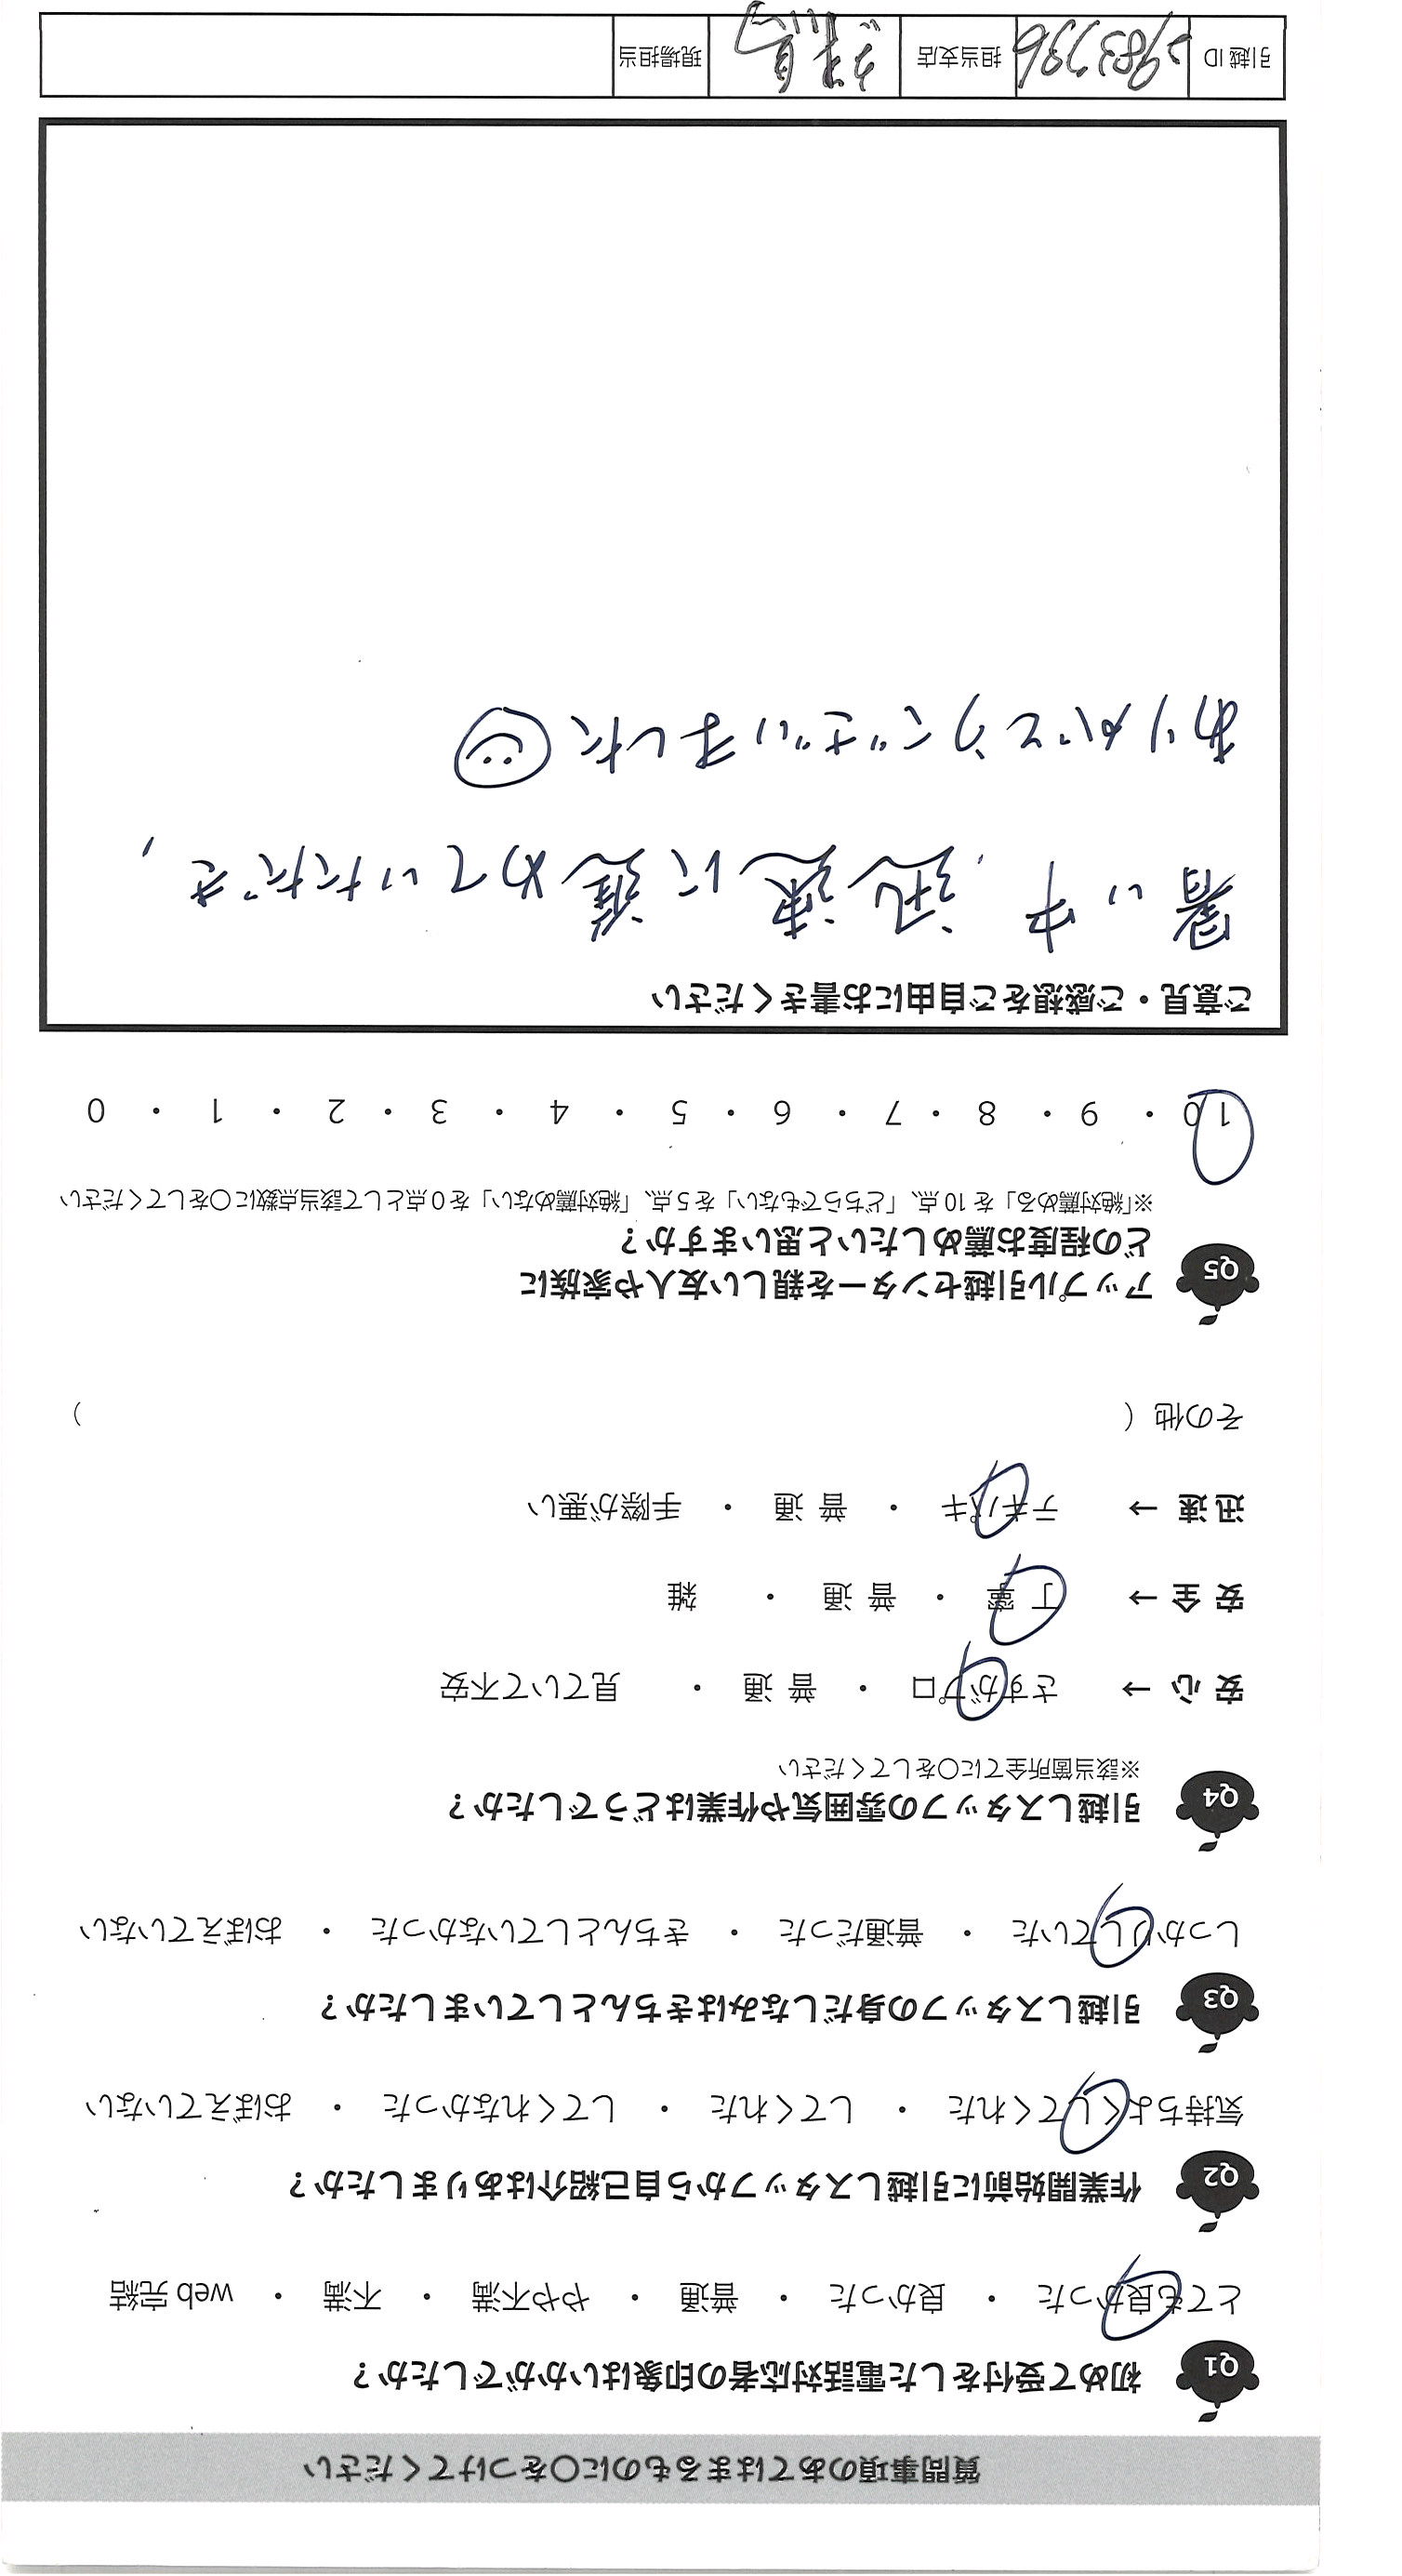 質問事項のあてはまるものに〇をつけてください
Q1 初めて受付をした電話対応者の印象はいかがでしたか？
とても良かった ・ 良かった ・ 普通 ・ やや不満 ・ 不満 ・ web 完結
Q2 作業開始前に引越しスタッフから自己紹介はありましたか？
気持ちよくしてくれた ・ してくれた ・ してくれなかった ・ おぼえていない
Q3 引越しスタッフの身だしなみはきちんとしていましたか？
しっかりしていた ・ 普通だった ・ きちんとしていなかった ・ おぼえていない
Q4 引越しスタッフの雰囲気や作業はどうでしたか？
※該当箇所全てに〇をしてください
安 心 → さすがプロ ・ 普 通 ・ 見ていて不安
安 全 → 丁 寧 ・ 普 通 ・ 雑
迅 速 → テキパキ ・ 普 通 ・ 手際が悪い
その他（ ）
Q5 アップル引越センターを親しい友人や家族に
どの程度お薦めしたいと思いますか？
※「絶対薦める」を 10 点、「どちらでもない」を 5 点、「絶対薦めない」を 0 点として該当点数に〇をしてください
10 ・ 9 ・ 8 ・ 7 ・ 6 ・ 5 ・ 4 ・ 3 ・ 2 ・ 1 ・ 0
ご意見・ご感想をご自由にお書きください
暑い中、迅速に進めていただき、
ありがとうございました
引越 ID 2983796 担当支店 現場担当